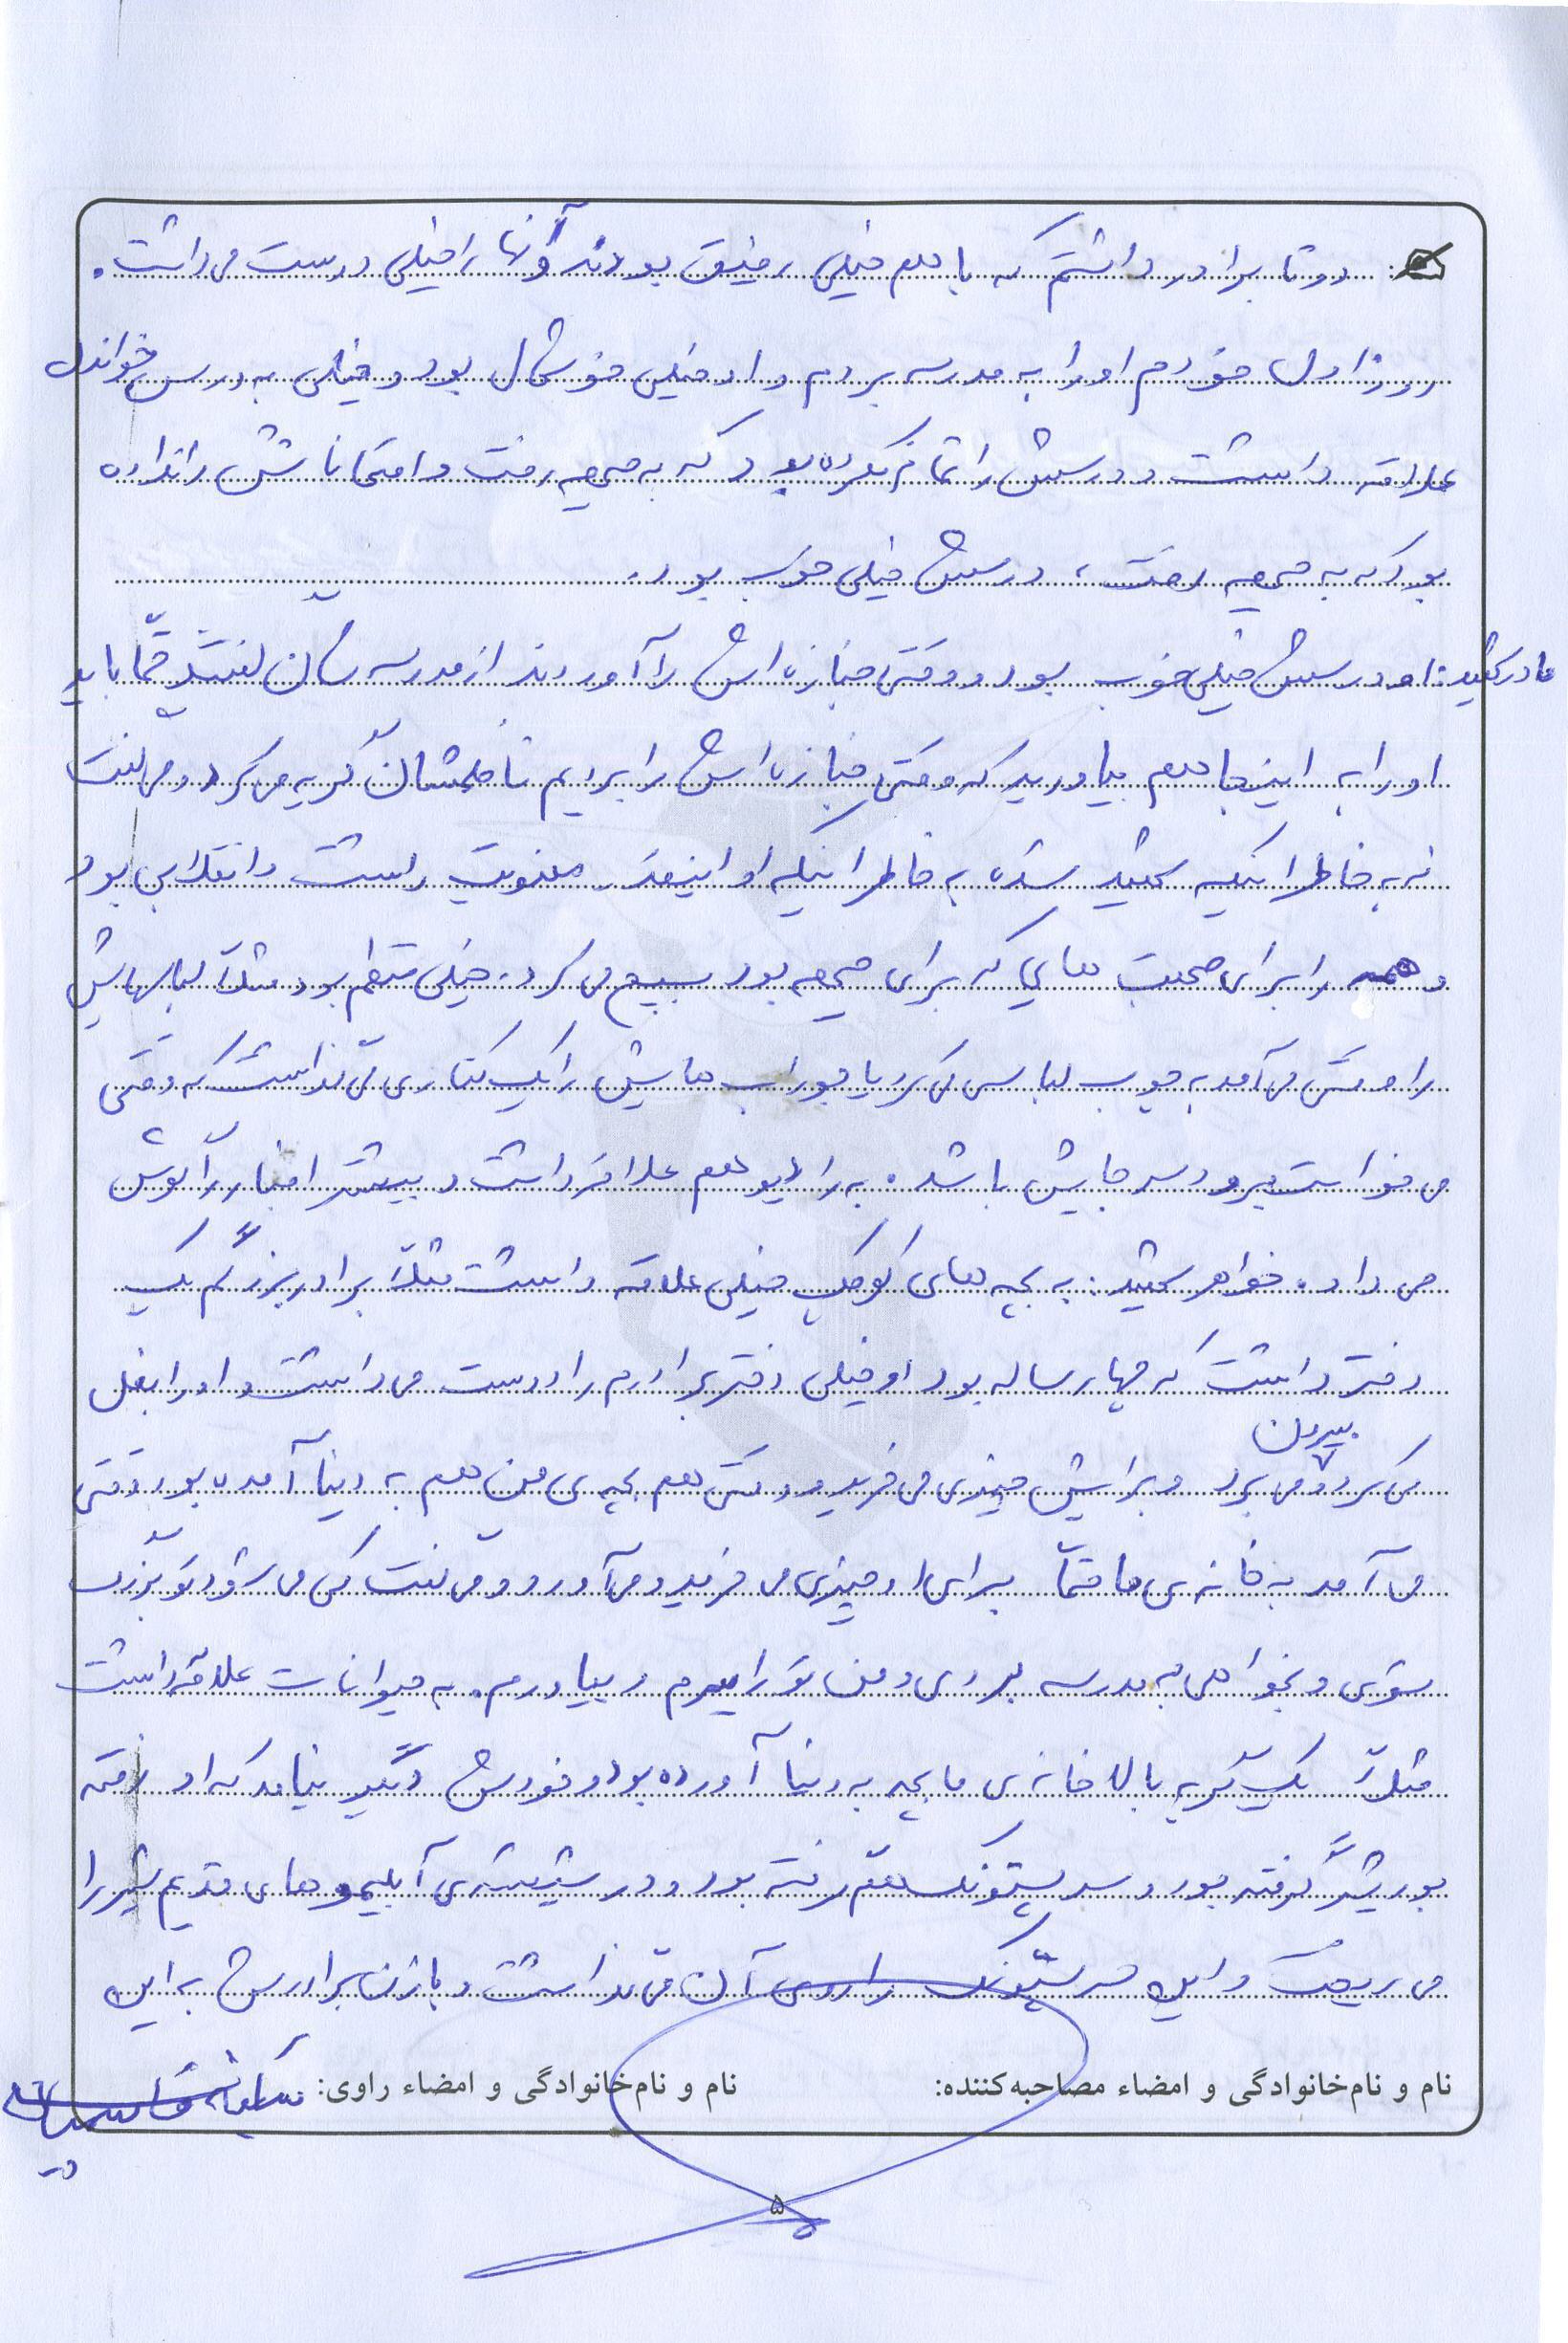 دوتا برادر داشتم که باهم خیلی رفیق بودند آونها را خیلی دوست می داشت.
روز اول خودم او را به مدرسه بردم و او خیلی خوشحال بود و خیلی به درس خواندن
علاقه داشت و درسش را تمام نکرده بود که به جبهه رفت و امتحاناتش را نداده
بود که به جبهه رفت، درسش خیلی خوب بود.
مادر شهید: او درسش خیلی خوب بود و وقتی جنازه اش را آوردند از مدرسه شان گفتند حتماً باید
او را به اینجا هم بیاورید که وقتی جنازه اش را بردیم ناظمشان گریه می کرد و می گفت
نه به خاطر اینکه شهید شده به خاطر اینکه او اینقدر معنویت داشت و انقلابی بود
و همه را برای صحبت هایی که برای جبهه بود بسیج می کرد. خیلی منظم بود مثلاً لباسهایش
را وقتی می آمد به چوب لباسی می کرد یا جوراب هایش را یک کناری می گذاشت که وقتی
می خواست برود سر جایش باشد. به رادیو هم علاقه داشت و بیشتر اخبار را گوش
می داد. خواهر شهید: به بچه های کوچک خیلی علاقه داشت مثلاً برادر بزرگم یک
دختر داشت که چهار ساله بود او خیلی دختر برادرم را دوست می داشت و او را بغل
می کرد و می برد بیرون و برایش چیزی می خرید و وقتی هم بچه ی من هم به دنیا آمده بود وقتی
می آمد به خانه ی ما حتماً برای او چیزی می خرید و می آورد و می گفت کی می شود تو بزرگ
شوی و بخواهی به مدرسه بروی و من تو را ببرم و بیاورم. به حیوانات علاقه داشت
مثلاً یک گربه بالا خانه ی ما بچه به دنیا آورده بود و خودش دیگر نیامد که او رفته
بود شیر گرفته بود و سر پستونک هم گرفته بود و در شیشه ی آبلیمو های قدیم شیر را
می ریخت و این سر پستونک را روی آن می گذاشت و با زن برادرش به این
نام و نام‌خانوادگی و امضاء مصاحبه‌کننده:
نام و نام‌خانوادگی و امضاء راوی:
۵